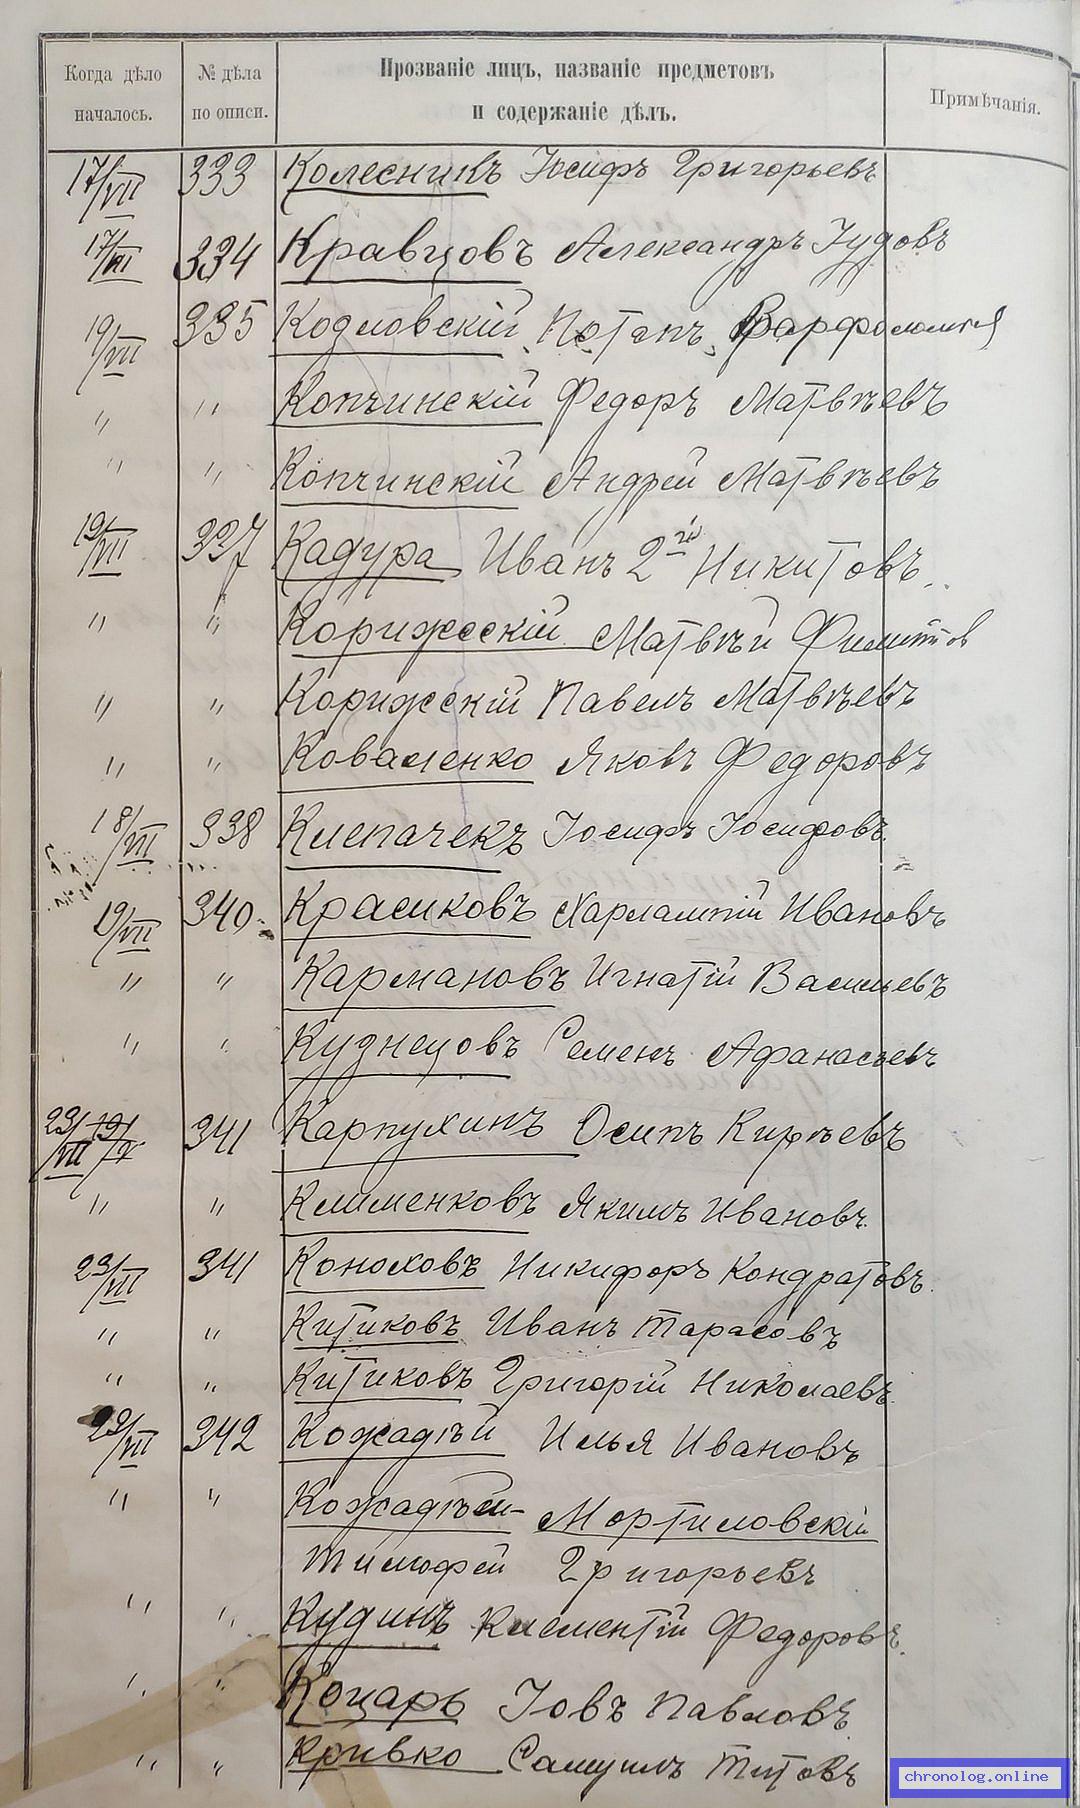 Когда дѣло началось. № дѣла по описи. Прозваніе лицъ, названіе предметовъ и содержаніе дѣлъ. Примѣчанія.
17/VII 333 Колесникъ Іосифъ Григорьевъ
17/VII 334 Кравцовъ Александръ Іудовъ
19/VII 335 Козловскій Потапъ Варфоломея
" " Копчинскій Федоръ Матвѣевъ
" " Копчинскій Андрей Матвѣевъ
19/VII 337 Кадура Иванъ 2й Никитовъ
" " Корижскій Матвѣй
" " Корижскій Павелъ Матвѣевъ
" " Коваленко Яковъ Федоровъ
18/VII 338 Клепачекъ Іосифъ Іосифовъ
19/VII 340 Красиковъ Харлампій Ивановъ
" " Кармановъ Игнатій Васильевъ
" " Кузнецовъ Семенъ Афанасьевъ
23/VII 341 Карпухинъ Осипъ Кирѣевъ
" " Клименковъ Якимъ Ивановъ
23/VII 341 Коноховъ Никифоръ Кондратовъ
" " Китиковъ Иванъ Тарасовъ
" " Китиковъ Григорій Николаевъ
23/VII 342 Кожадѣй Илья Ивановъ
" " Кожадѣй- Мортиловскій
Тимофей Григорьевъ
" " Кудинъ Клементій Федоровъ
" " Коцарь Іовъ Павловъ
" " Кривко Самуилъ Титовъ
chronolog.online